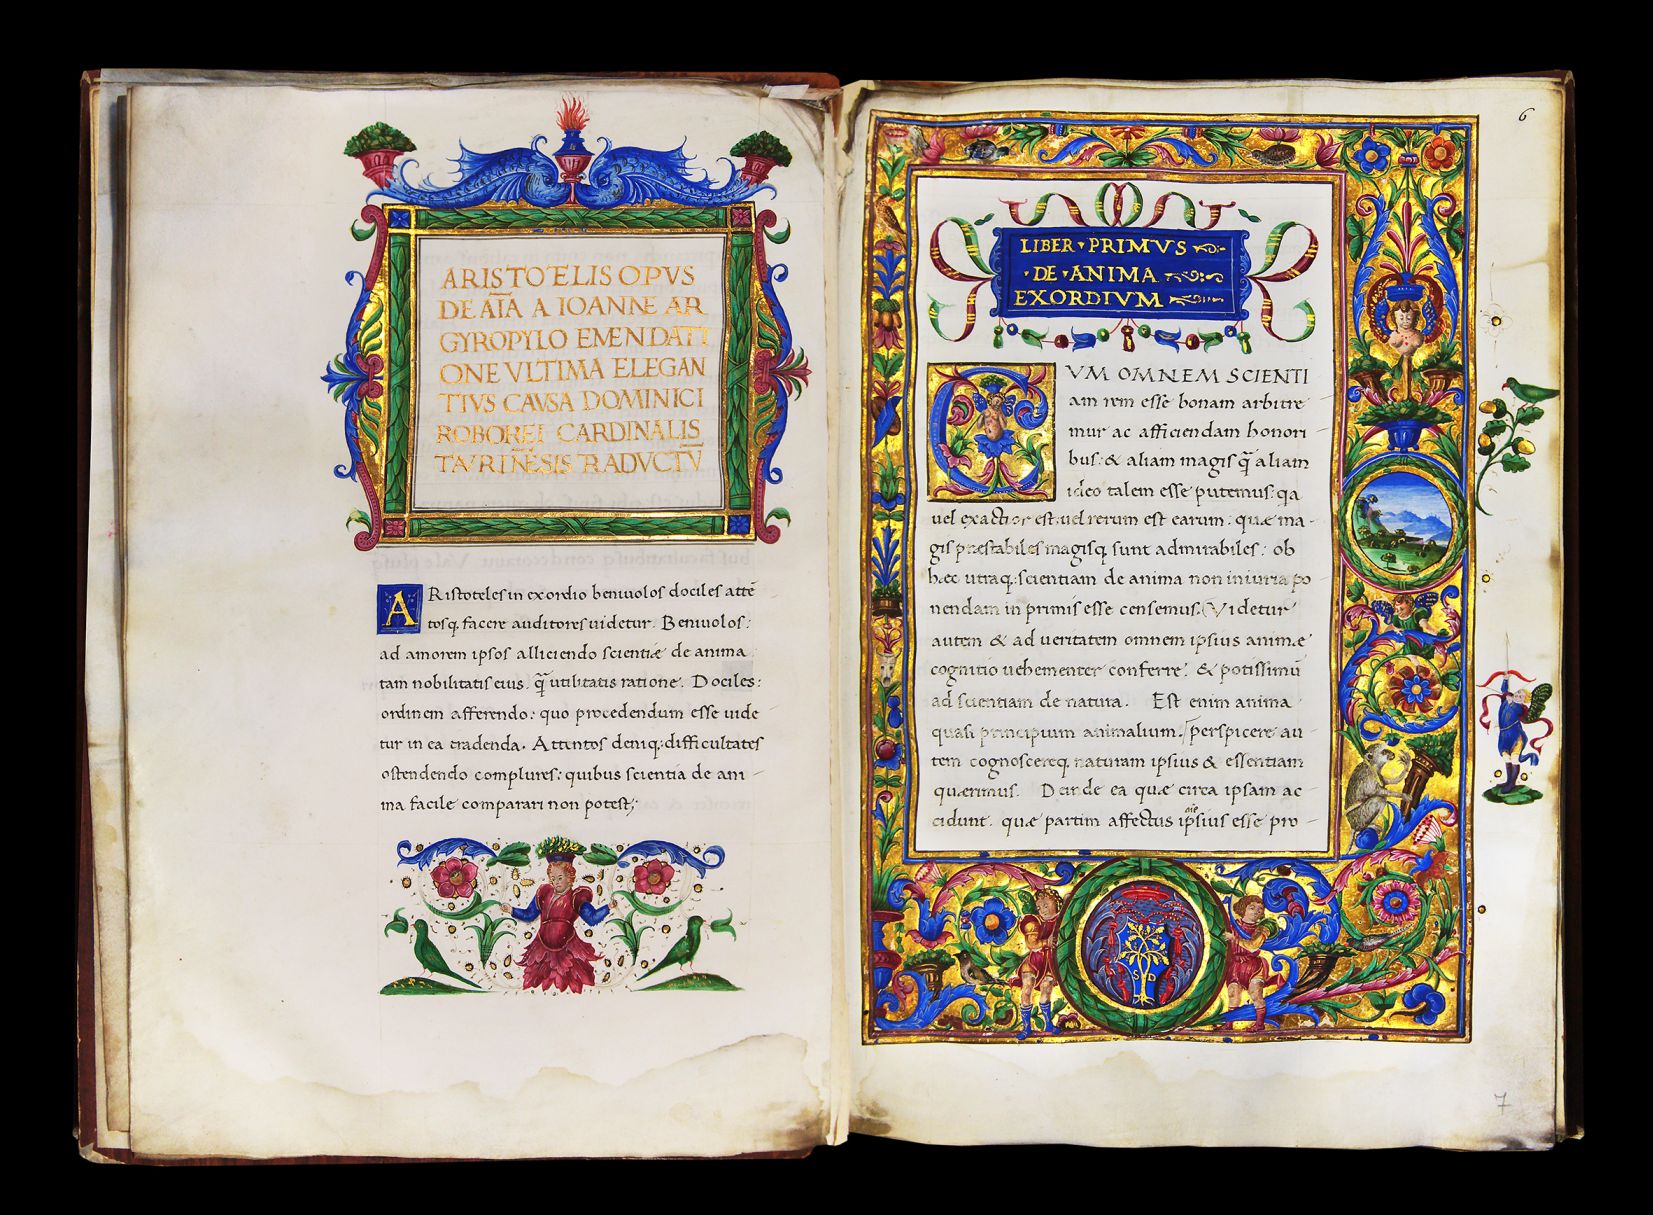 ARISTOELIS OPVS
DE AĪA A IOANNE AR
GYROPYLO EMENDATI
ONE VLTIMA ELEGAN
TIVS CAVSA DOMINICI
ROBOREI CARDINALIS
TAVRINĒSIS TRADVCTV̄
ARistoteles in exordio beniuolos dociles attē
tosq. facere auditores uidetur. Beniuolos:
ad amorem ipsos alliciendo scientiæ de anima
tam nobilitatis eius. q̄ utilitatis ratione. Dociles:
ordinem afferendo: quo procedendum esse uide
tur in ea tradenda. Attentos deniq: difficultates
ostendendo complures: quibus scientia de ani
ma facile comparari non potest;
6
LIBER PRIMVS
DE ANIMA
EXORDIVM
CVM OMNEM SCIENTI
am rem esse bonam arbitre
mur ac afficiendam honori
bus: & aliam magis q̄ aliam
ideo talem esse putemus: qa
uel exactior est: uel rerum est earum: quæ ma
gis præstabiles magisq sunt admirabiles: ob
hæc utraq: scientiam de anima non iniuria po
nendam in primis esse censemus. Videtur
autem & ad ueritatem omnem ipsius animæ
cognitio uehementer conferre: & potissimū
ad scientiam de natura. Est enim anima
quasi principium animalium. perspicere au
tem cognoscereq. naturam ipsius & essentiam
quærimus. Deinde ea quæ circa ipsam ac
cidunt. quæ partim affectus ipsius aīe esse pro
S D
7